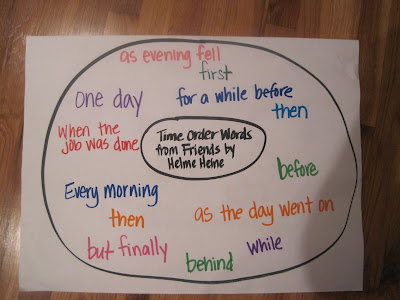 as evening fell
first
one day
for a while before
then
When the
job was done
Time Order Words
from Friends by
Helme Heine
before
Every morning
then
as the day went on
but finally
behind
while